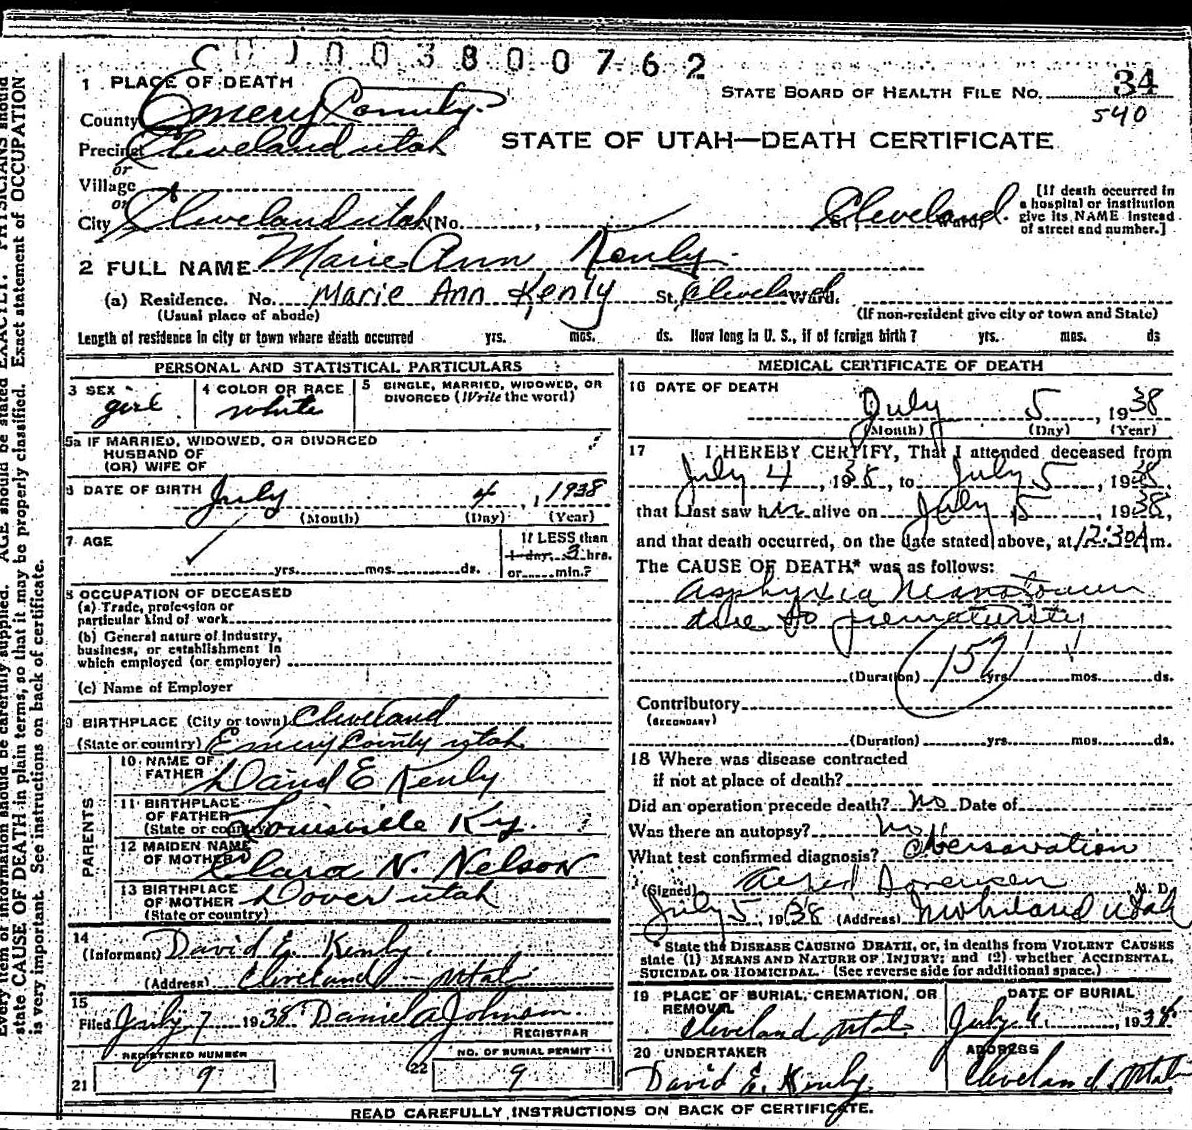 003800762
1 PLACE OF DEATH
STATE BOARD OF HEALTH FILE NO. 34
540
County Emery County.
STATE OF UTAH—DEATH CERTIFICATE
Precinct Cleveland utah
or
Village
or
City Cleveland utah (No. , St., Cleveland Ward)
[If death occurred in a hospital or institution give its NAME instead of street and number.]
2 FULL NAME Marie Ann Kenly.
(a) Residence. No. Marie Ann Kenly St. Cleveland Ward.
(Usual place of abode) (If non-resident give city or town and State)
Length of residence in city or town where death occurred yrs. mos. ds. How long in U. S., if of foreign birth? yrs. mos. ds
PERSONAL AND STATISTICAL PARTICULARS
3 SEX girl
4 COLOR OR RACE white
5 SINGLE, MARRIED, WIDOWED, OR DIVORCED (Write the word)
5a IF MARRIED, WIDOWED, OR DIVORCED
HUSBAND OF
(OR) WIFE OF
6 DATE OF BIRTH July 4, 1938
(Month) (Day) (Year)
7 AGE
If LESS than
1 day 3 hrs.
yrs. mos. ds. or min.?
8 OCCUPATION OF DECEASED
(a) Trade, profession or
particular kind of work
(b) General nature of Industry,
business, or establishment in
which employed (or employer)
(c) Name of Employer
9 BIRTHPLACE (City or town) Cleveland
(State or country) Emery County utah
PARENTS
10 NAME OF FATHER David E Kenly
11 BIRTHPLACE OF FATHER (State or country) Louisville Ky.
12 MAIDEN NAME OF MOTHER Clara N. Nelson
13 BIRTHPLACE OF MOTHER (State or country) Dover utah
14
(Informant) David E. Kenly.
(Address) Cleveland - Utah
15
Filed July 7 1938 Daniel A Johnson.
REGISTRAR
REGISTERED NUMBER
NO. OF BURIAL PERMIT
21 9
22 9
MEDICAL CERTIFICATE OF DEATH
16 DATE OF DEATH
July 5, 1938
(Month) (Day) (Year)
17 I HEREBY CERTIFY, That I attended deceased from
July 4, 1938, to July 5, 1938,
that I last saw her alive on July 5, 1938,
and that death occurred, on the date stated above, at 12:30A m.
The CAUSE OF DEATH* was as follows:
asphyxia Neonatorum
due to prematurity
159
(Duration) yrs. mos. ds.
Contributory
(SECONDARY)
(Duration) yrs. mos. ds.
18 Where was disease contracted
if not at place of death?
Did an operation precede death? No Date of
Was there an autopsy? No
What test confirmed diagnosis? Obersavation
(Signed) M. D.
July 5, 1938 (Address) Utah
*State the DISEASE CAUSING DEATH, or, in deaths from VIOLENT CAUSES
state (1) MEANS AND NATURE OF INJURY; and (2) whether ACCIDENTAL,
SUICIDAL OR HOMICIDAL. (See reverse side for additional space.)
19 PLACE OF BURIAL, CREMATION, OR REMOVAL
Cleveland, Utah
DATE OF BURIAL
July 6, 1938
20 UNDERTAKER
David E. Kenly.
ADDRESS
Cleveland, Utah
READ CAREFULLY INSTRUCTIONS ON BACK OF CERTIFICATE.
Every item of information should be carefully supplied. AGE should be stated EXACTLY. PHYSICIANS should
state CAUSE OF DEATH in plain terms, so that it may be properly classified. Exact statement of OCCUPATION
is very important. See instructions on back of certificate.